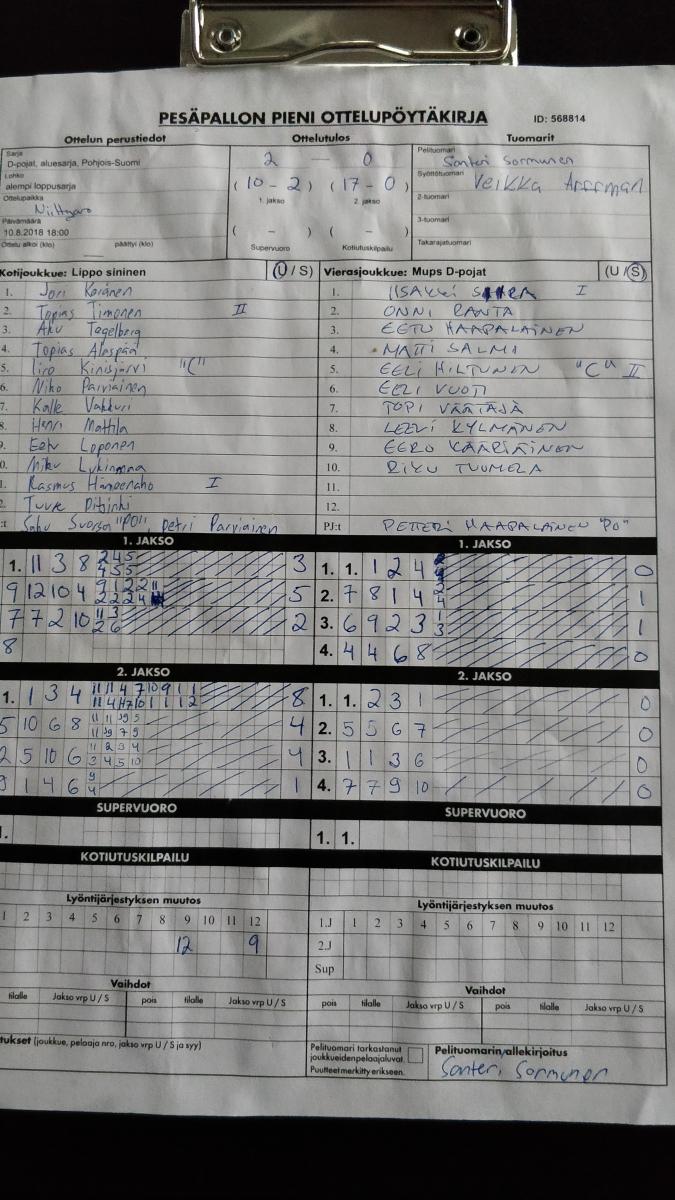 PESÄPALLON PIENI OTTELUPÖYTÄKIRJA ID: 568814
Ottelun perustiedot Ottelutulos Tuomarit
Sarja
D-pojat, aluesarja, Pohjois-Suomi
Lohko
alempi loppusarja
Ottelupaikka
Päivämäärä
10.8.2018 18:00
Ottelu alkoi (klo) — päättyi (klo)
2 — 0
( 10 - 2 ) ( 17 - 0 )
1. jakso 2. jakso
( - ) ( - )
Supervuoro Kotiutuskilpailu
Pelituomari
Santeri Sormunen
Syöttötuomari
Veikka
2-tuomari
3-tuomari
Takarajatuomari
Kotijoukkue: Lippo sininen (U / S)
1. Joni
2. Topias Timonen II
3. Aku Tegelberg
4. Topias Alaspää
5. Iiro Kinisjärvi "C"
6. Niko Parviainen
7. Kalle Vakkuri
8. Henri Mattila
9. Eetu Loponen
0. Miku
1. Rasmus I
2. Tuure
:t Saku "PO", Petri Parviainen
Vierasjoukkue: Mups D-pojat (U / S)
1. IISAKKI I
2. ONNI RANTA
3. EETU HAAPALAINEN
4. MATTI SALMI
5. EELI HILTUNEN "C" II
6. EELI VUOTI
7. TOPI VÄÄTÄJÄ
8. LEEVI KYLMÄNEN
9. EERO KÄÄRIÄINEN
10. RIKU TUOMELA
11.
12.
PJ:t PETTERI HAAPALAINEN "PO"
1. JAKSO
1. 11 3 8 3
9 12 10 4 5
7 7 2 10 2
8
1. JAKSO
1. 1. 1 2 4 0
2. 7 8 1 4 1
3. 6 9 2 3 1
4. 4 4 6 8 0
2. JAKSO
1. 1 3 4 8
5 10 6 8 4
2 5 10 6 4
9 1 4 6 1
2. JAKSO
1. 1. 2 3 1 0
2. 5 5 6 7 0
3. 1 1 3 6 0
4. 7 7 9 10 0
SUPERVUORO
SUPERVUORO
1. 1.
KOTIUTUSKILPAILU
KOTIUTUSKILPAILU
Lyöntijärjestyksen muutos
1 2 3 4 5 6 7 8 9 10 11 12
12 9
Lyöntijärjestyksen muutos
1.J 1 2 3 4 5 6 7 8 9 10 11 12
2.J
Sup
Vaihdot
tilalle Jakso vrp U / S pois tilalle Jakso vrp U / S
Vaihdot
pois tilalle Jakso vrp U / S pois tilalle Jakso vrp U / S
tukset (joukkue, pelaaja nro, jakso vrp U / S ja syy)
Pelituomari tarkastanut
joukkueiden pelaajaluvat.
Puutteet merkitty erikseen.
Pelituomarin allekirjoitus
Santeri Sormunen